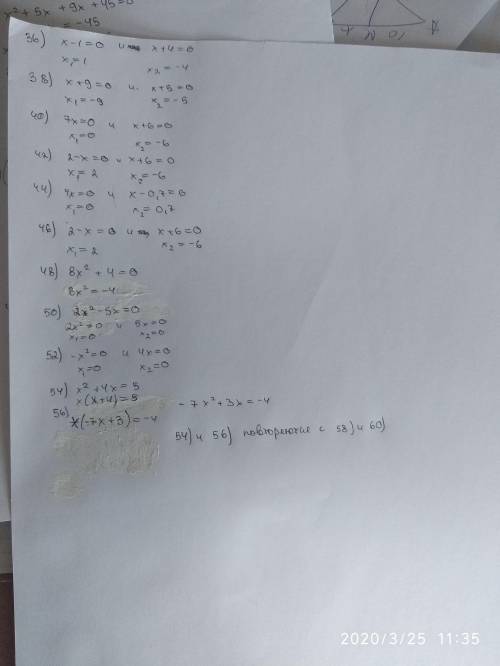 x² + 5x + 9x + 45 = 0
= -45
36) x - 1 = 0 и x + 4 = 0
x₁ = 1 x₂ = -4
38) x + 9 = 0 и x + 5 = 0
x₁ = -9 x₂ = -5
40) 7x = 0 и x + 6 = 0
x₁ = 0 x₂ = -6
42) 2 - x = 0 и x + 6 = 0
x₁ = 2 x₂ = -6
44) 4x = 0 и x - 0,7 = 0
x₁ = 0 x₂ = 0,7
46) 2 - x = 0 и x + 6 = 0
x₁ = 2 x₂ = -6
48) 8x² + 4 = 0
8x² = -4
50) 2x² - 5x = 0
2x² = 0 и 5x = 0
x₁ = 0 x₂ = 0
52) -x² = 0 и 4x = 0
x₁ = 0 x₂ = 0
54) x² + 4x = 5
x(x + 4) = 5
56) -7x² + 3x = -4
x(-7x + 3) = -4
54) и 56) повторение с 58) и 60)
2020/3/25 11:35